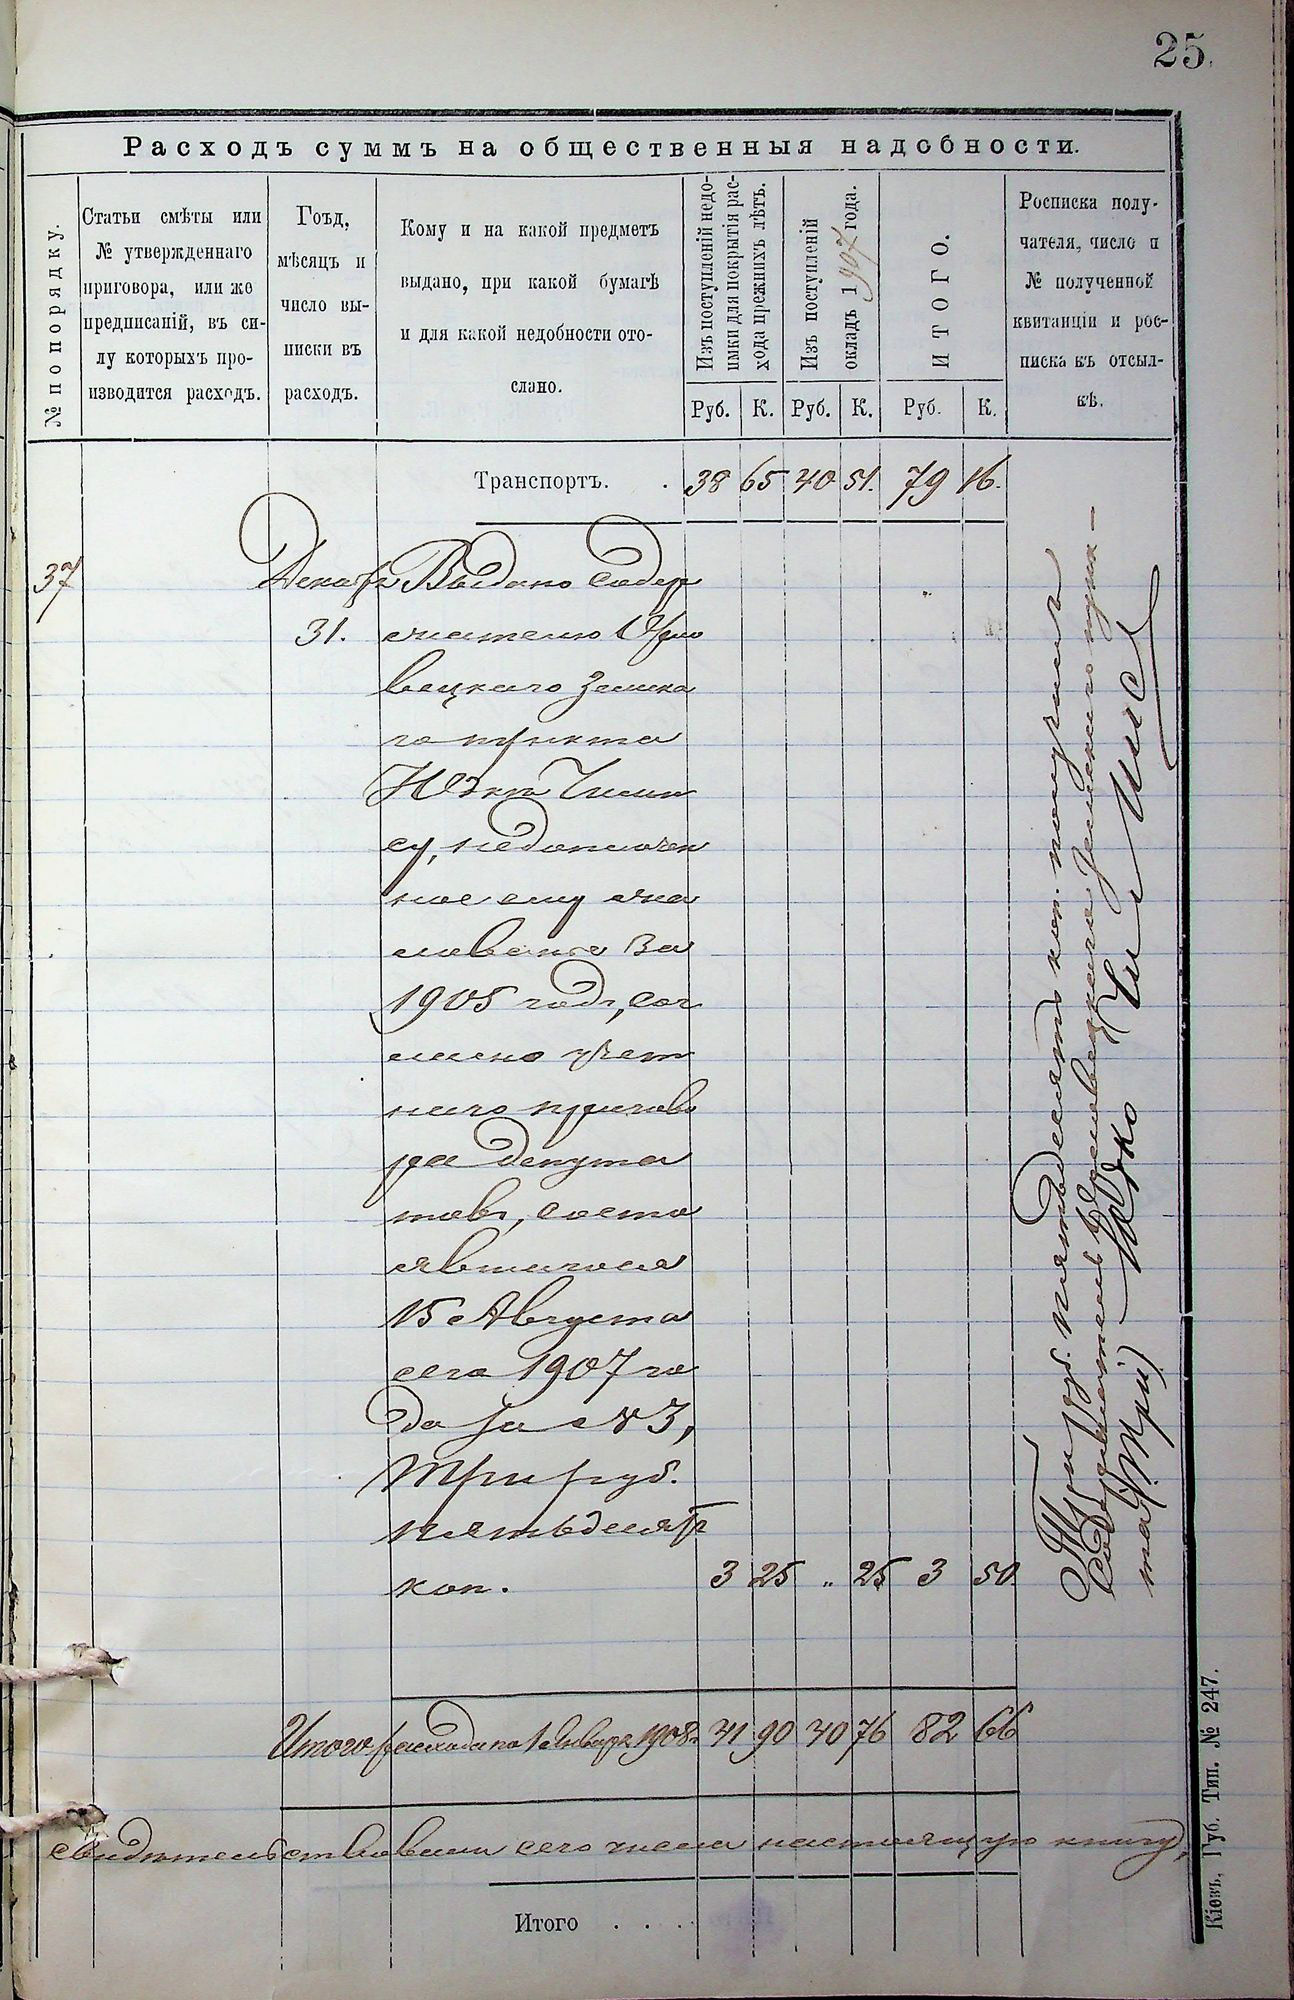 25.
Расходъ суммъ на общественныя надобности.
№ по порядку.
Статьи смѣты или
№ утвержденнаго
приговора, или же
предписаній, въ си-
лу которыхъ про-
изводится расходъ.
Гоъд,
мѣсяцъ и
число вы-
писки въ
расходъ.
Кому и на какой предметъ
выдано, при какой бумагѣ
и для какой недобности ото-
слано.
Изъ поступленій недо-
имки для покрытія рас-
хода прежнихъ лѣтъ.
Изъ поступленій
окладъ 1907 года.
ИТОГО.
Росписка полу-
чателя, число и
№ полученной
квитанціи и рос-
писка къ отсыл-
кѣ.
Руб. К. Руб. К. Руб. К.
Транспортъ. . 38 65 40 51. 79 16.
37 Декабря Выдано содер
31. жателю
вецкаго Земска
го пункта
Юдкѣ Чижи
су, недоплачен
ное ему жа
лованье за
1905 годъ, сог
ласно учет
наго пригово
ра депута
товъ, состо
явшагося
15 Августа
сего 1907 го
да за № 3,
Три руб.
пятьдесятъ
коп. 3 25 „ 25 3 50.
Три руб. пятьдесятъ коп. получилъ
Содержатель Земскаго пунк-
та (Три) Юдко
Итого расхода по 1 Января 1908 г. 41 90 40 76 82 66
свидѣтельствовали сего числа настоящую книгу,
Итого . . . .
Кіевъ, Губ. Тип. № 247.